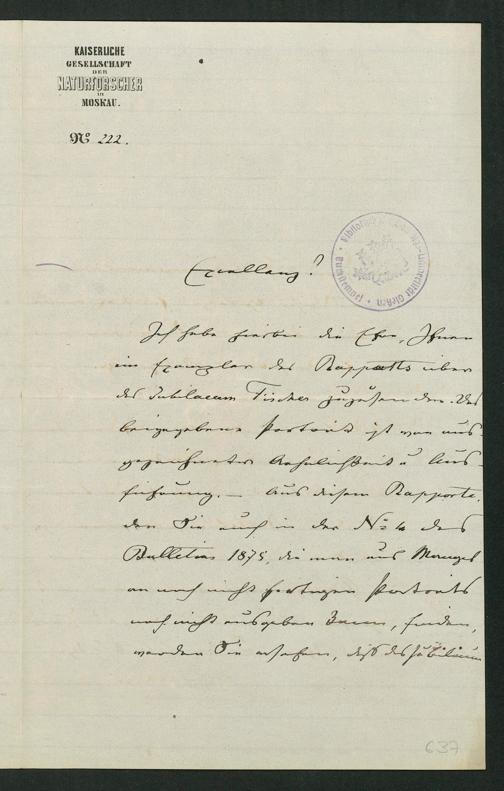 KAISERLICHE
GESELLSCHAFT
DER
NATURFORSCHER
IN
MOSKAU.
No 222.
Excellenz!
Ich habe hierbei die Ehre, Ihnen
ein Exemplar des Rapports über
das Jubilaeum Fischer zuzusenden. Das
beigegebene Portrait ist von aus-
gezeichneter Aehnlichkeit u Aus-
führung. — Aus diesem Rapporte,
den Sie auch in der No 4 des
Bulletins 1875, die man aus Mangel
an noch nicht fertigen Portraits
noch nicht ausgeben kann, finden,
werden Sie ersehen, daß das Jubilaeum
637